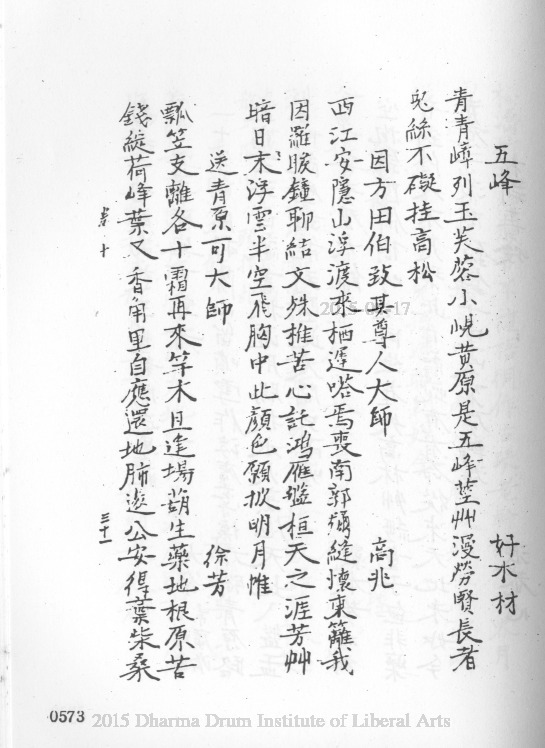 五峰 好水材
青青嶂列玉芙蓉小峴黄原是五峰莖艸漫勞賢長者
兔絲不礙挂高松
因方田伯致其尊人大師 高兆
西江安隱山浮渡來栖遲嗒焉喪南郭彌縫懷東籬我
因羅睺鐘聊結文殊推苦心託鴻雁盤桓天之涯芳艸
暗日末浮雲半空飛胸中此顏色願扱明月惟
送青原可大師 徐芳
瓢笠支離各十霜再來竿木且逢場葫生藥地根原苦
錢綻荷峰葉又香甪里自應還地肺遠公安得葉柴桑
卷十 三十一
0573 2015 Dharma Drum Institute of Liberal Arts